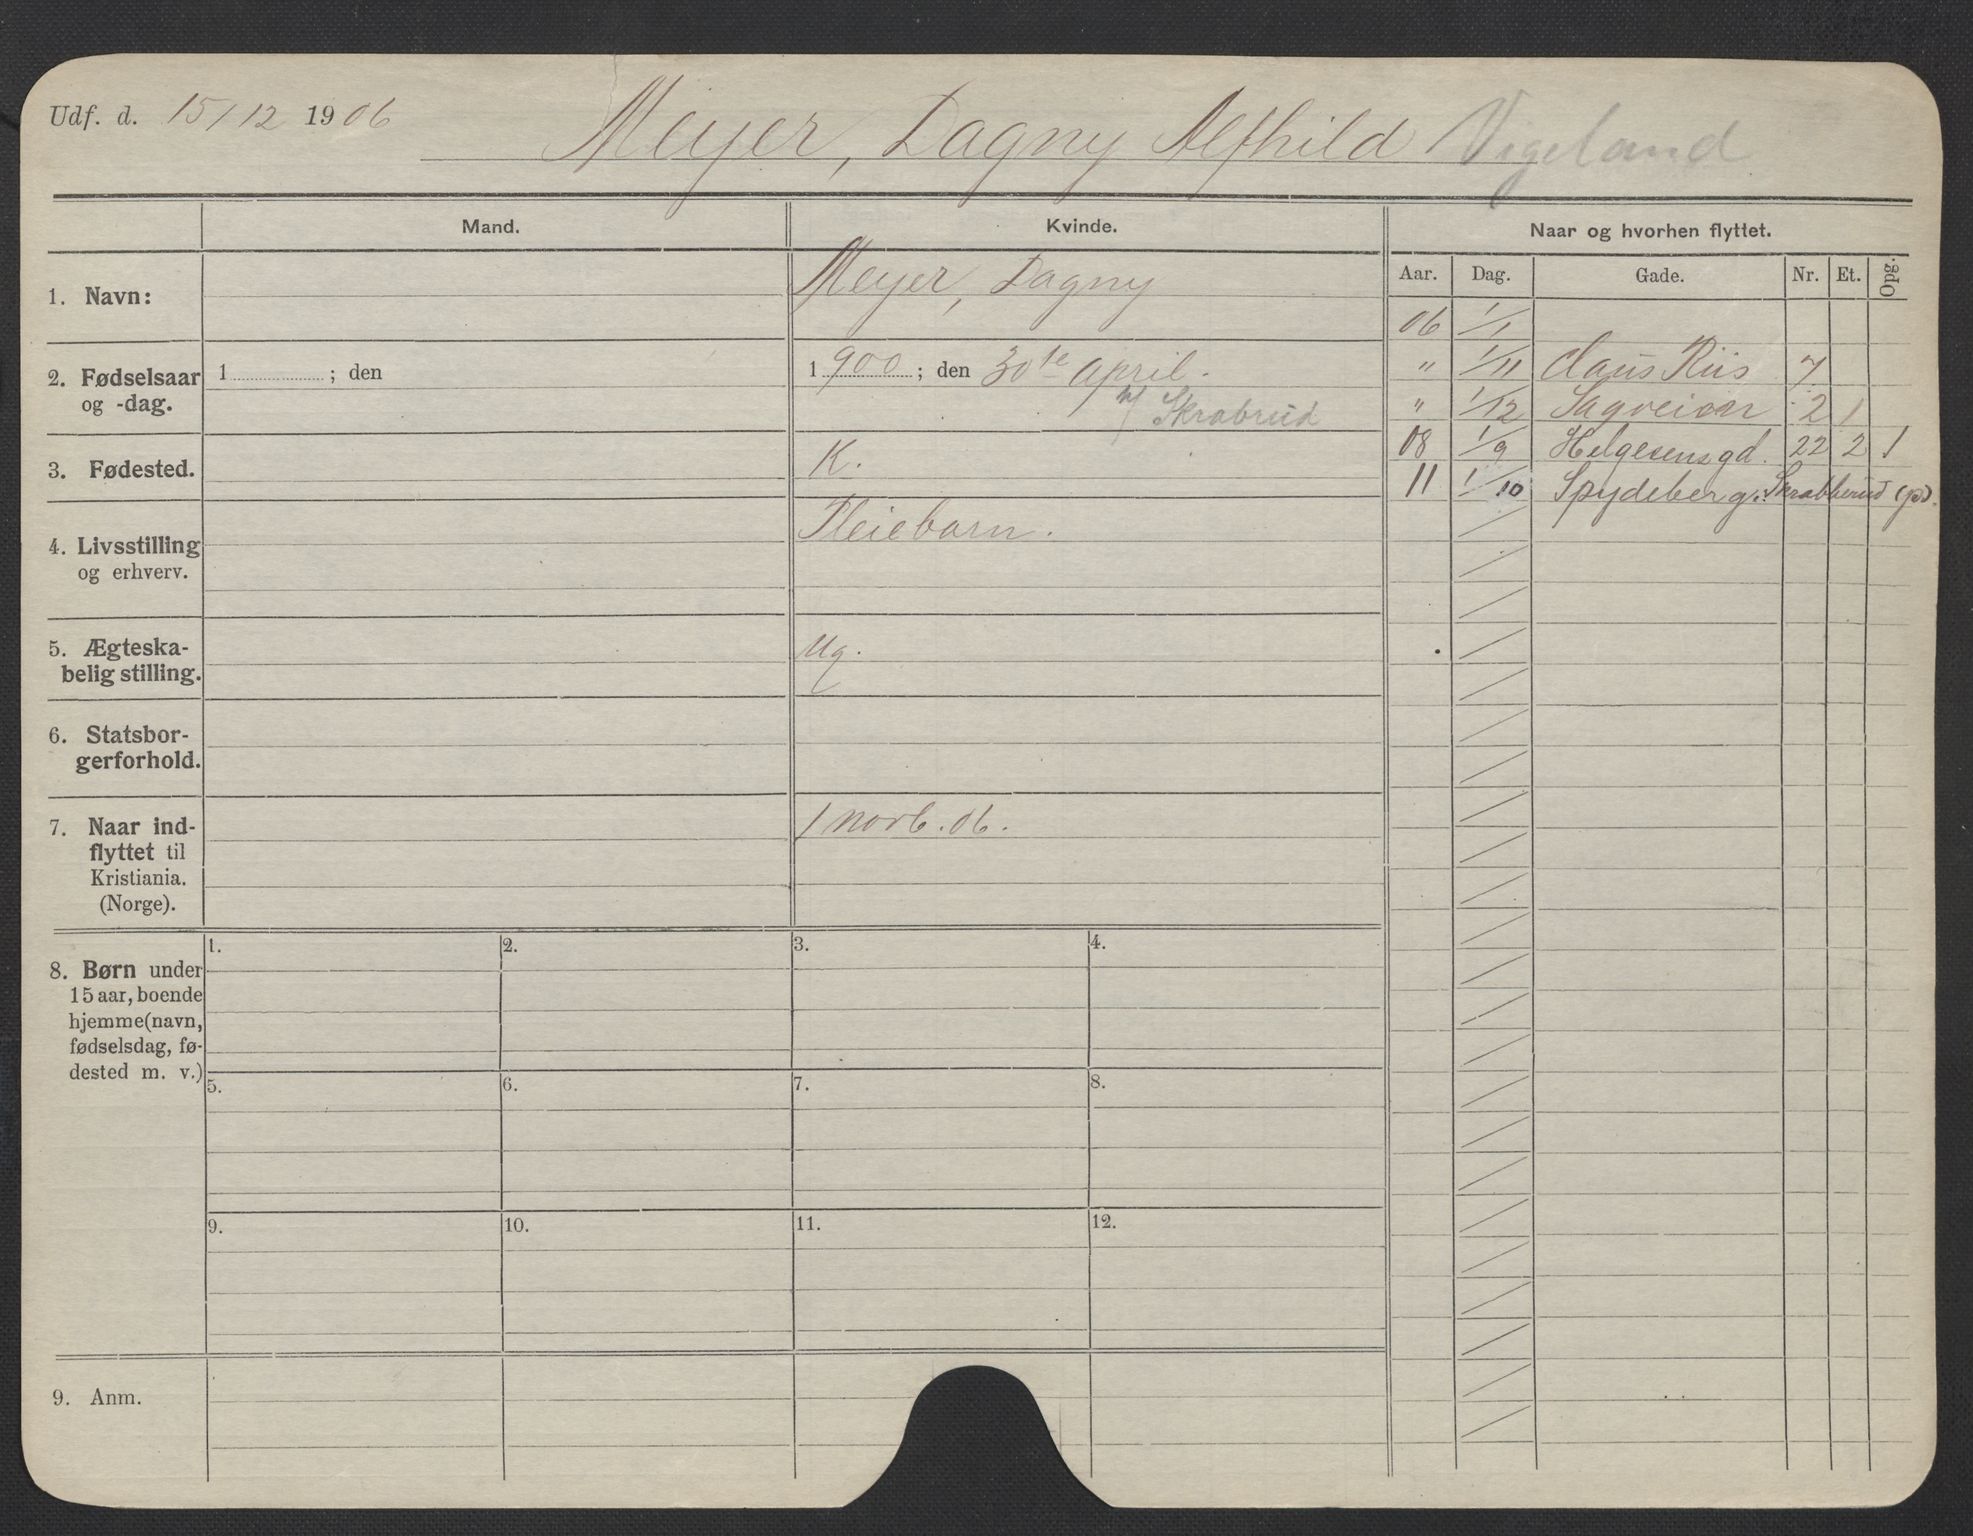 Udf. d. 15/12 1906
Meyer, Dagny Alfhild Vigeland
Mand.
Kvinde.
Naar og hvorhen flyttet.
Aar. Dag. Gade. Nr. Et. Opg.
1. Navn:
Meyer, Dagny
2. Fødselsaar
og -dag.
1 ; den
1900; den 30te april.
Skrabrud
3. Fødested.
K.
4. Livsstilling
og erhverv.
Pleiebarn.
5. Ægteska-
belig stilling.
Ug.
6. Statsbor-
gerforhold.
7. Naar ind-
flyttet til
Kristiania.
(Norge).
1 novb. 06.
06 1/1
" 1/11 Claus Riis 7
" 1/12 Sagveien 2 1
08 1/9 Helgesens gd. 22 2 1
11 1/10 Spydeberg. Skrabberud (pd).
8. Børn under
15 aar, boende
hjemme(navn,
fødselsdag, fø-
dested m. v.)
1. 2. 3. 4.
5. 6. 7. 8.
9. 10. 11. 12.
9. Anm.